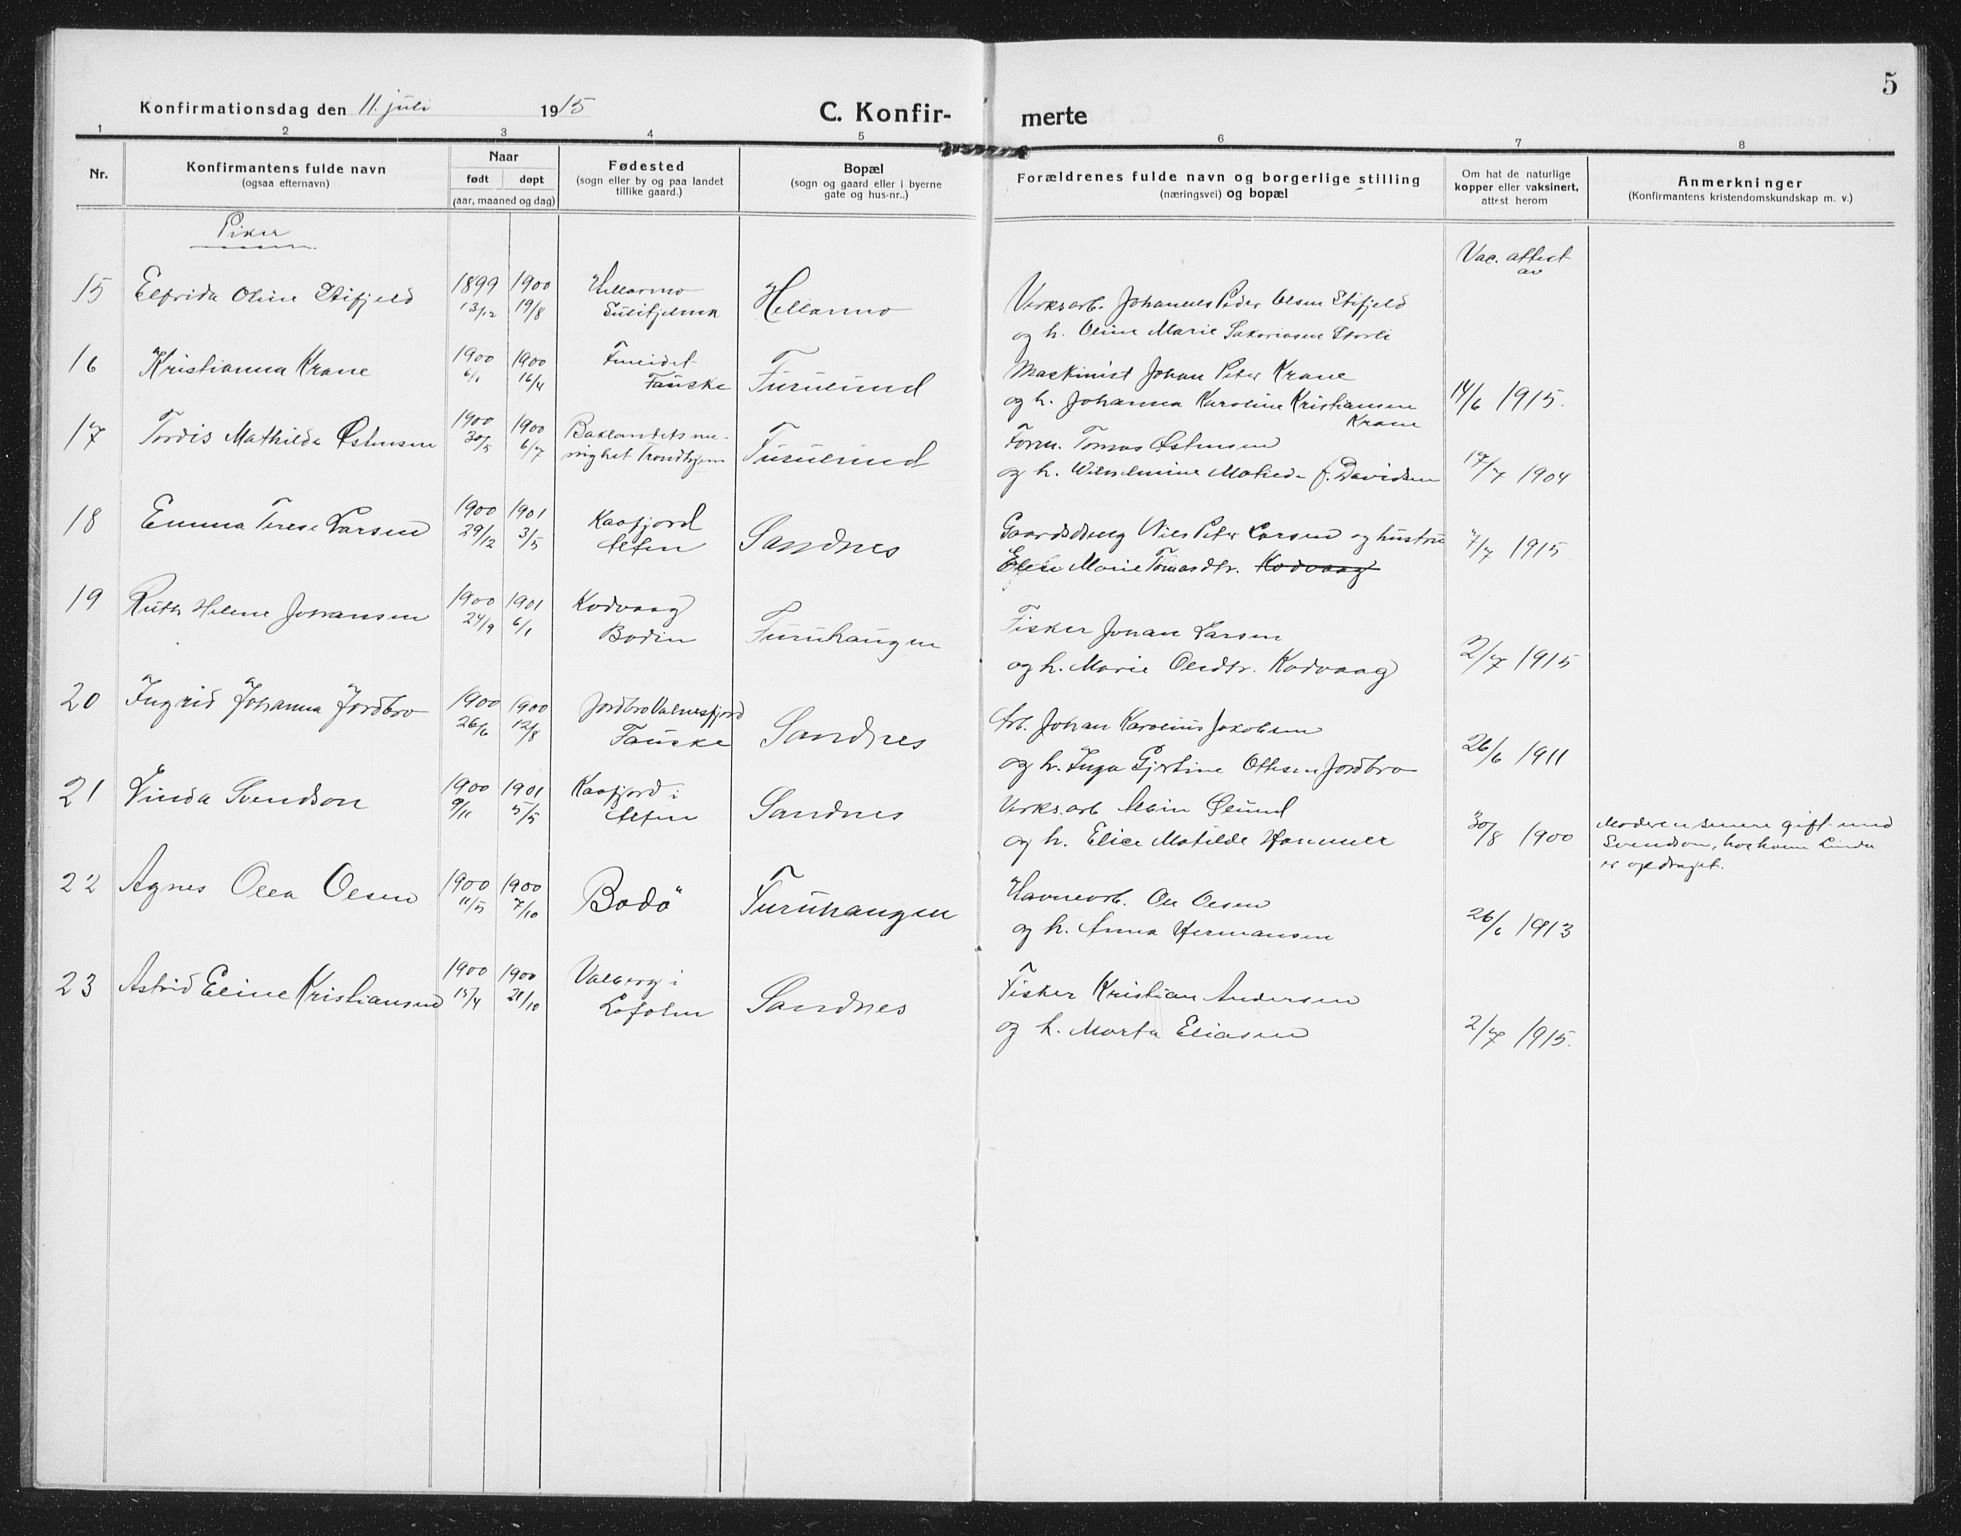 5
Konfirmationsdag den 11. juli 1915
C. Konfirmerte
1 2 3 4 5 6 7 8
Nr.
Konfirmantens fulde navn
(ogsaa efternavn)
Naar
født døpt
(aar, maaned og dag)
Fødested
(sogn eller by og paa landet
tillike gaard.)
Bopæl
(sogn og gaard eller i byerne
gate og hus-nr..)
Forældrenes fulde navn og borgerlige stilling
(næringsvei) og bopæl
Om hat de naturlige
kopper eller vaksinert,
attest herom
Anmerkninger
(Konfirmantens kristendomskundskap m. v.)
Piker
Vac. attest
av
15 Elfrida Oline Stifjeld 1899 13/12 1900 19/8 Hellarmo Sulitjelma Hellarmo
Verksarb. Johannes Peder Olsen Stifjeld
og h. Oline Marie Sakariasen Storli
16 Kristianna Krane 1900 6/1 1900 16/4 Finneidet Fauske Furulund
Maskinist Johan Peter Krane
og h. Johanna Karoline Kristiansen Krane 14/6 1915.
17 Tordis Mathilde Østensen 1900 30/5 1900 6/7 Baklandets me-
nighet Trondhjem Furulund
Form. Tomas Østensen
og h. Wilhelmine Matilde f. Davidsen 17/7 1904
18 Emma Terese Larsen 1900 29/12 1901 3/5 Kaafjord Alten Sandnes
Gaardsbrug Nils Peter Larsen og hustru
Elen Marie Tomasdtr. Kodvaag 7/7 1915
19 Ruth Helene Johansen 1900 24/9 1901 6/1 Kodvaag Bodin Furuhaugen
Fisker Johan Larsen
og h. Marie Olsdtr. Kodvaag 2/7 1915
20 Ingrid Johanna Jordbro 1900 26/6 1900 12/8 Jordbro Valnesfjord Fauske Sandnes
Arb. Johan Karolius Jakobsen
og h. Inga Gjertine Ottesen Jordbro 26/6 1911
21 Linda Svendson 1900 9/11 1901 5/5 Kaafjord i Alten Sandnes
Verksarb Albin Ølund
og h. Elice Matilde Hammer 30/8 1900
Moderen senere gift med
Svendson, hos ham Linda
er opdraget.
22 Agnes Olea Olsen 1900 11/5 1900 7/10 Bodö Furuhaugen
Havnearb. Ole Olsen
og h. Anna Hermansen 26/6 1913
23 Astrid Eline Kristiansen 1900 15/4 1900 21/10 Valberg i Lofoten Sandnes
Fisker Kristian Andersen
og h. Marta Eliasen 2/7 1915.